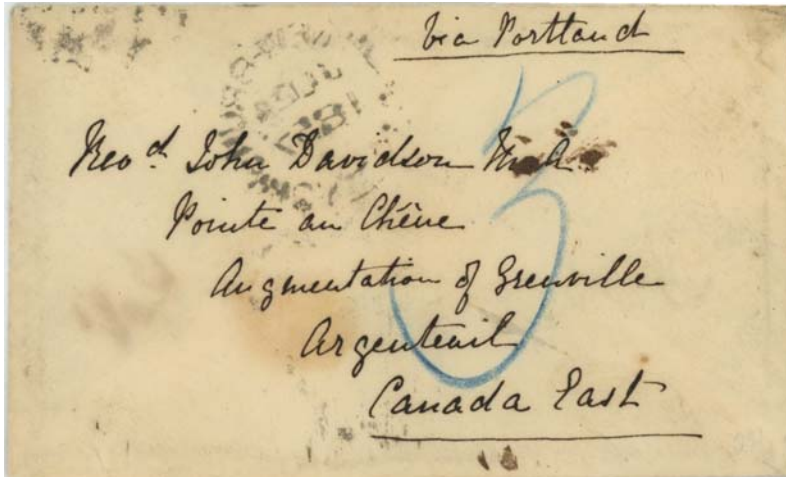 Via Portland
3
Revd. John Davidson M.A.
Pointe au Chêne
Augmentation of Grenville
Argenteuil
Canada East